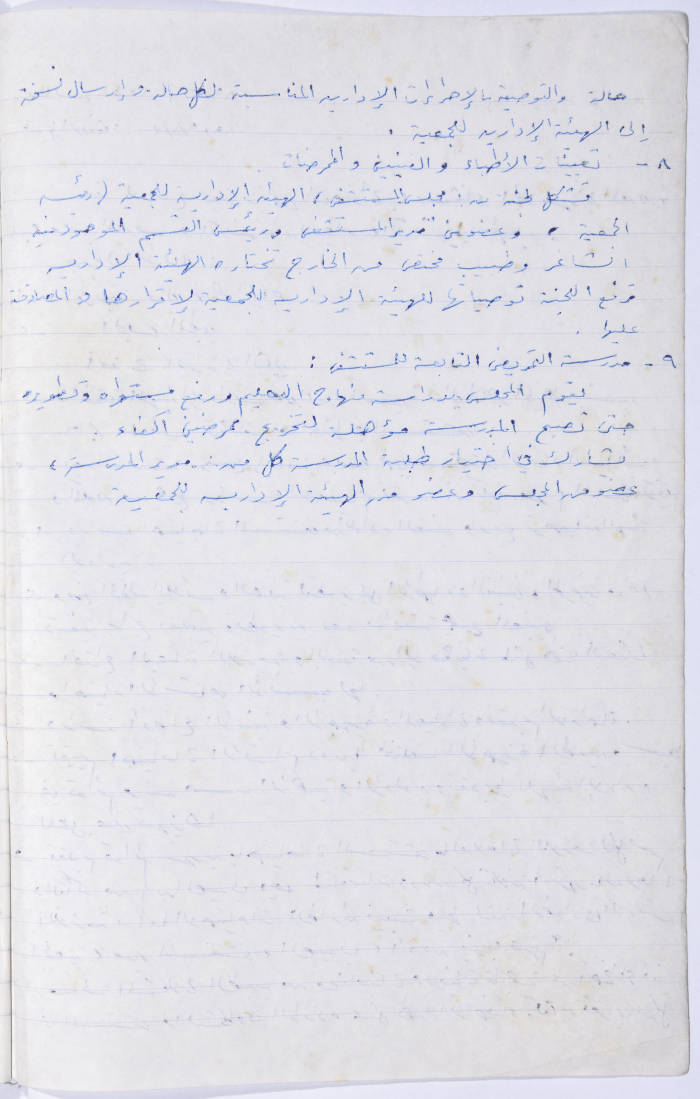 حالة والتوصية بالإجراءات الإدارية المناسبة لكل حالة وإرسال نسخة
إلى الهيئة الإدارية للجمعية .
٨ - تعيينات الأطباء والفنيين والممرضات
تشكل لجنة من مجلس المستشفى، الهيئة الإدارية للجمعية (رئيس
الجمعية ، وعضوين مدير المستشفى ورئيس القسم الموجود فيه
الشاغر وطبيب مختص من الخارج تختاره الهيئة الإدارية
ترفع اللجنة توصياتها للهيئة الإدارية للجمعية لإقرارها والمصادقة
عليها .
٩ - مدرسة التمريض التابعة للمستشفى :
يقوم المجلس بدراسة منهاج التعليم ورفع مستواه وتطويره
حتى تصبح المدرسة مؤهلة لتخريج ممرضين أكفاء .
تشارك في اختيار طلبة المدرسة كل من : مدير المدرسة ،
عضو من المجلس، وعضو من الهيئة الإدارية للجمعية